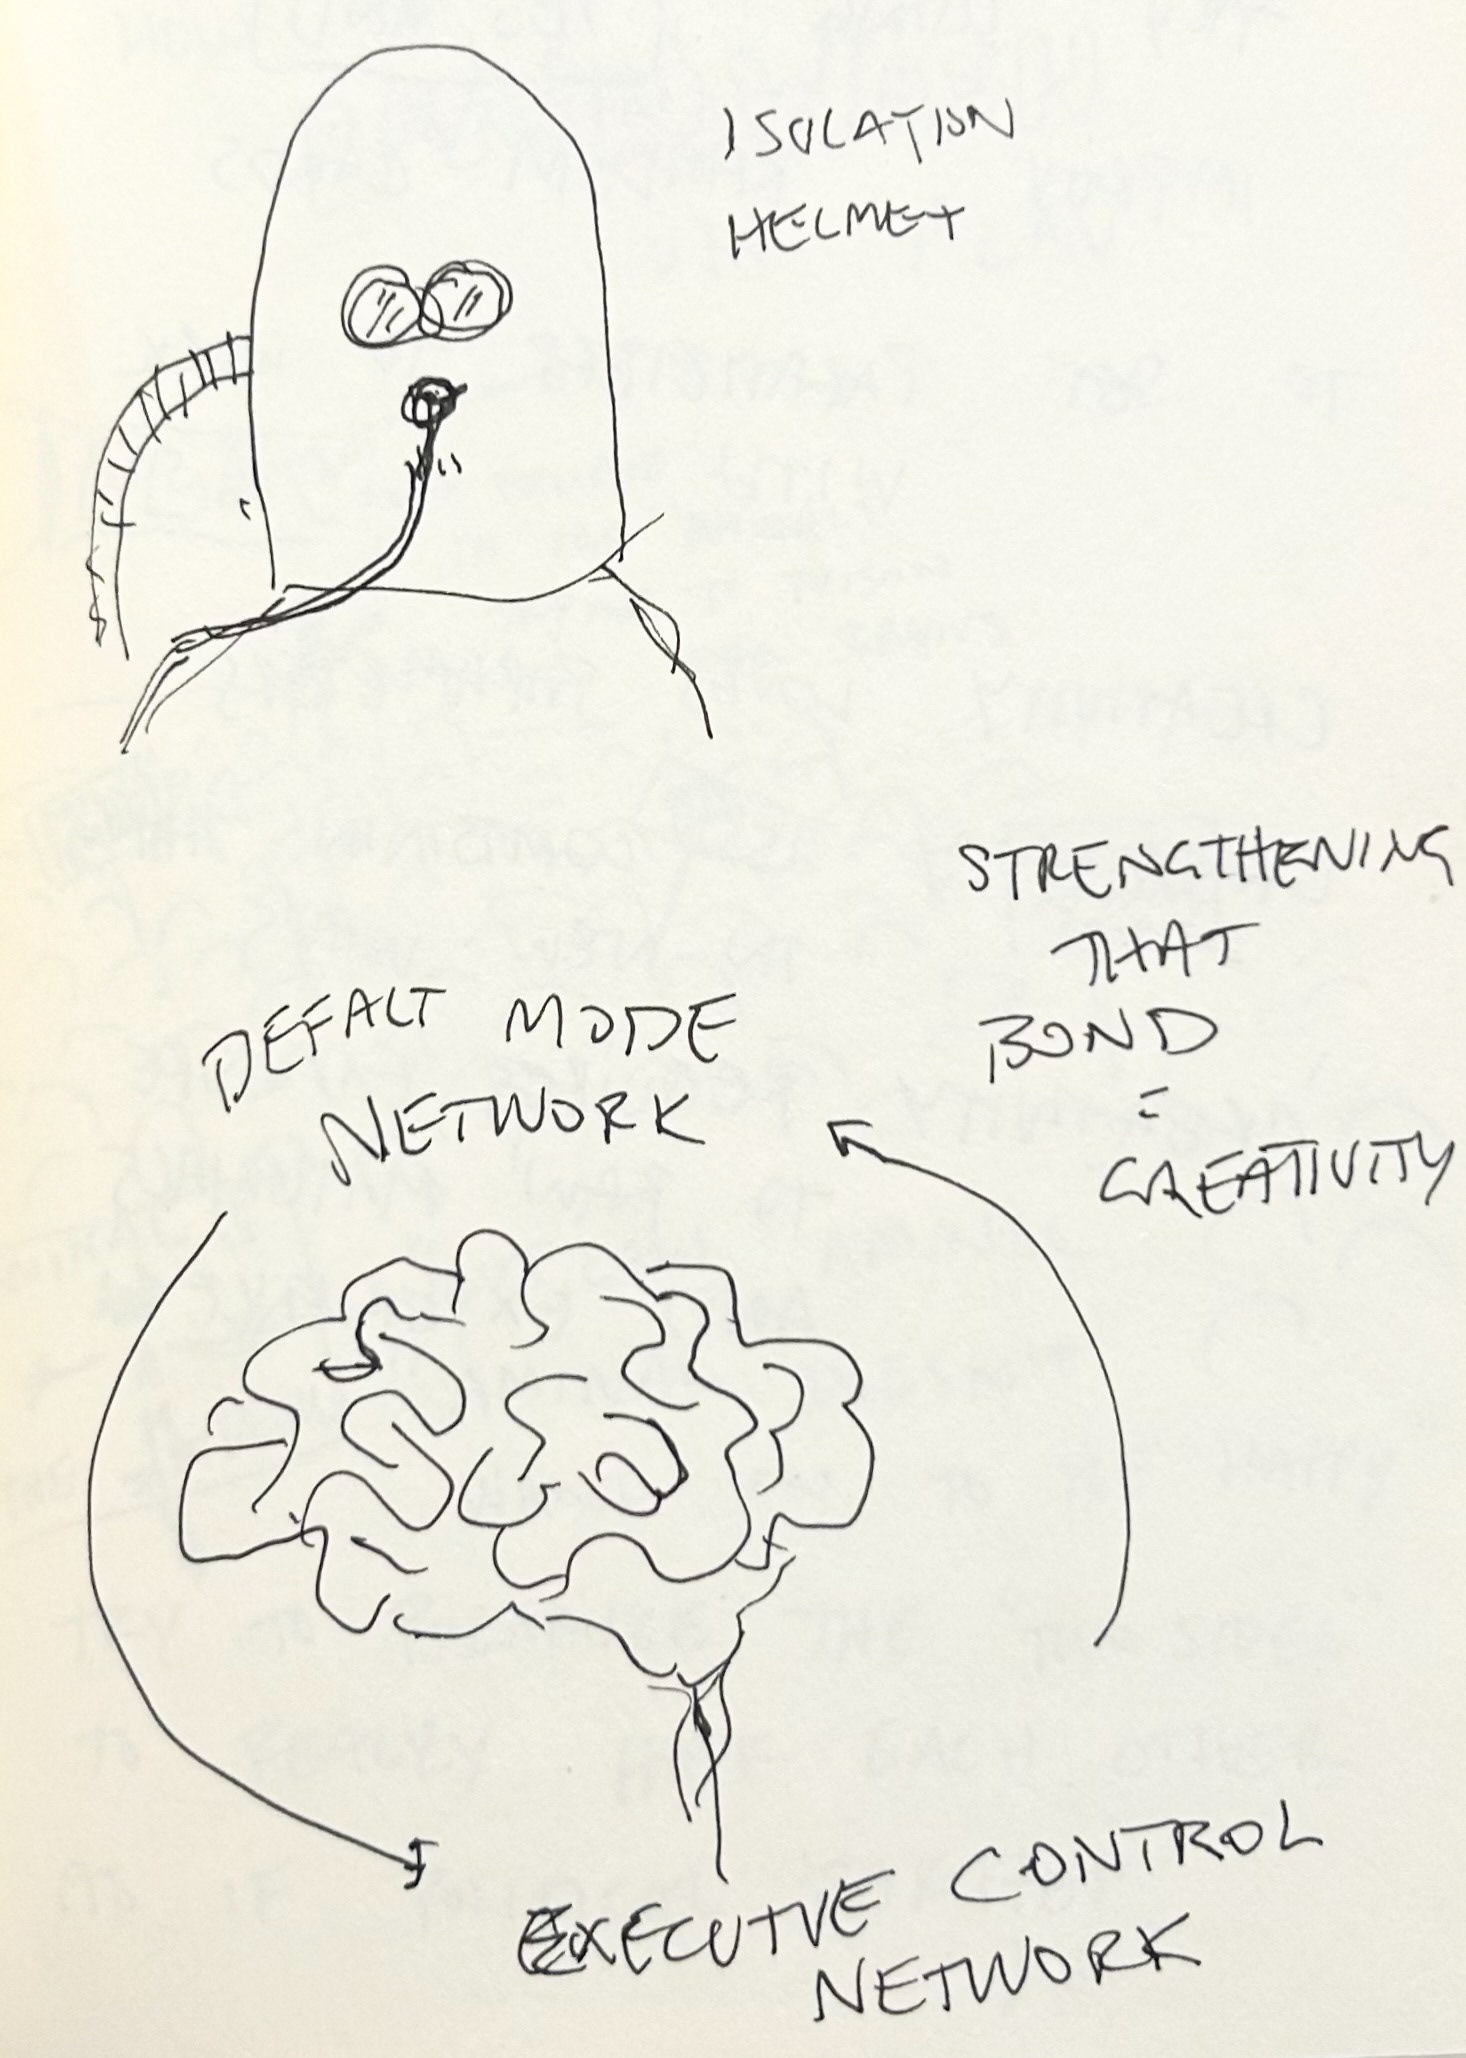 ISOLATION
HELMET
STRENGTHENING
THAT
BOND
=
CREATIVITY
DEFALT MODE
NETWORK
EXECUTVE CONTROL
NETWORK